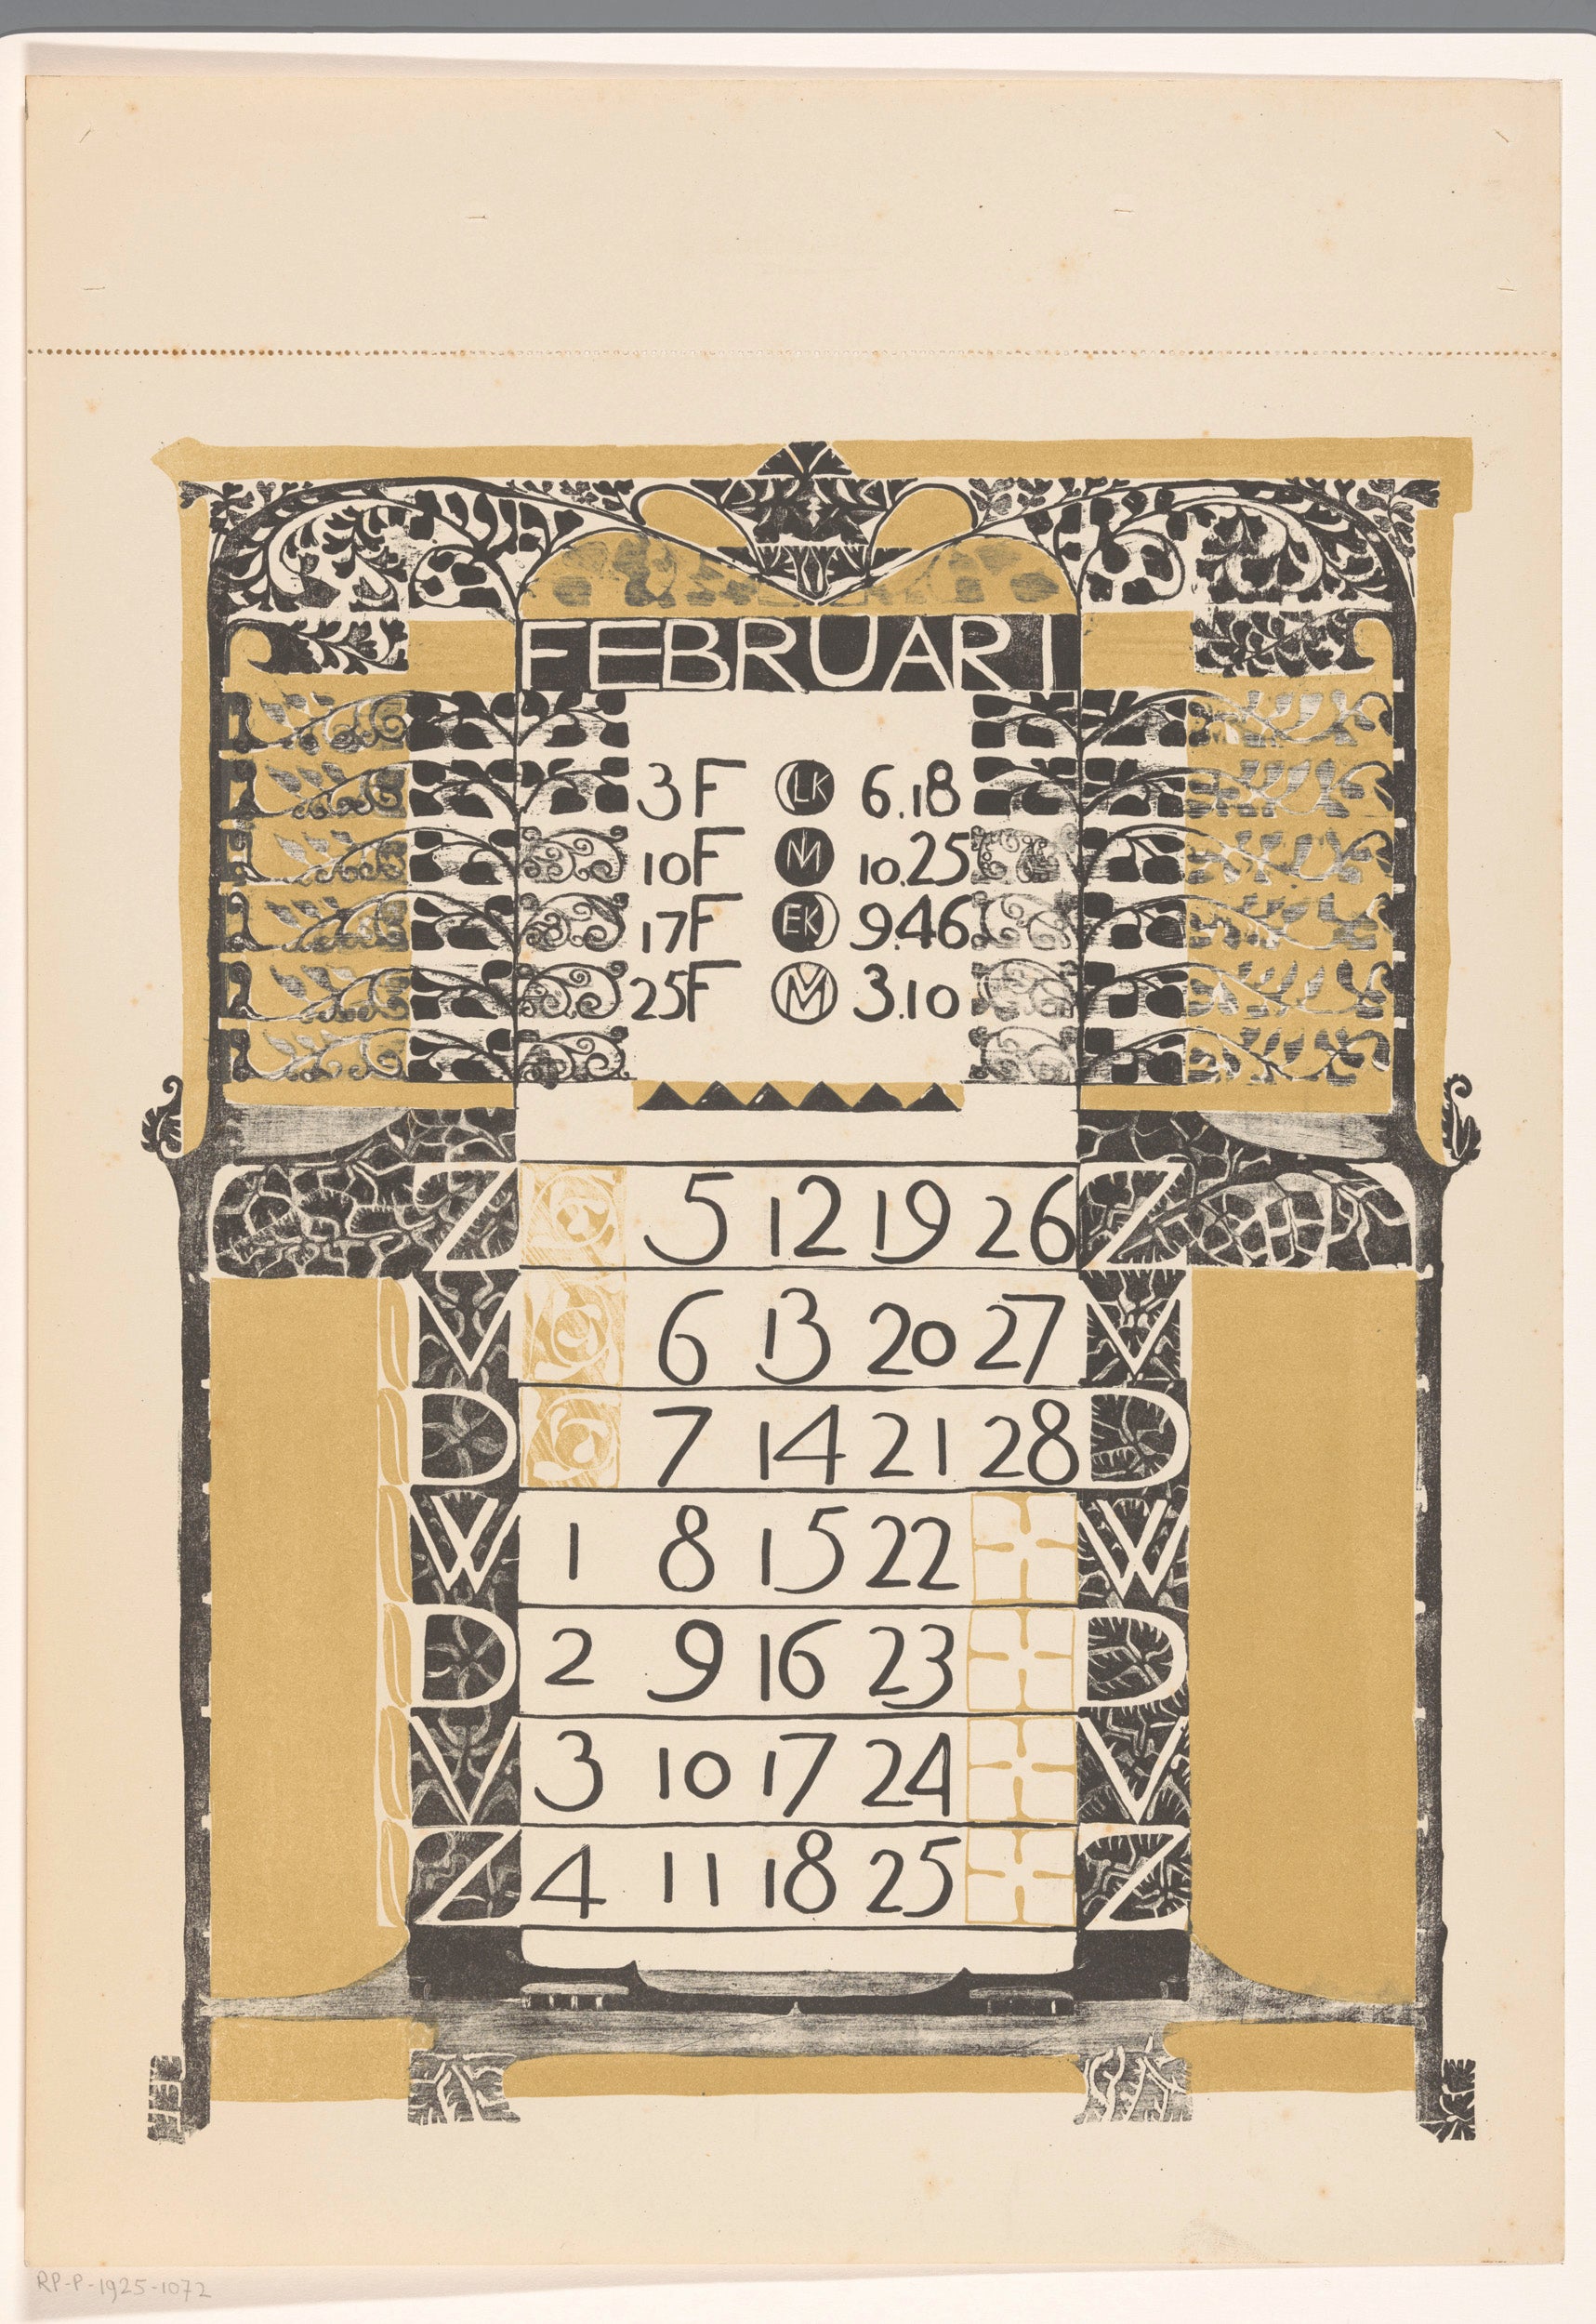 FEBRUARI
3 F LK 6.18
10 F NM 10.25
17 F EK 9.46
25 F VM 3.10
Z 5 12 19 26 Z
V 6 13 20 27 V
D 7 14 21 28 D
W 1 8 15 22 W
D 2 9 16 23 D
V 3 10 17 24 V
Z 4 11 18 25 Z
RP-P-1925-1072